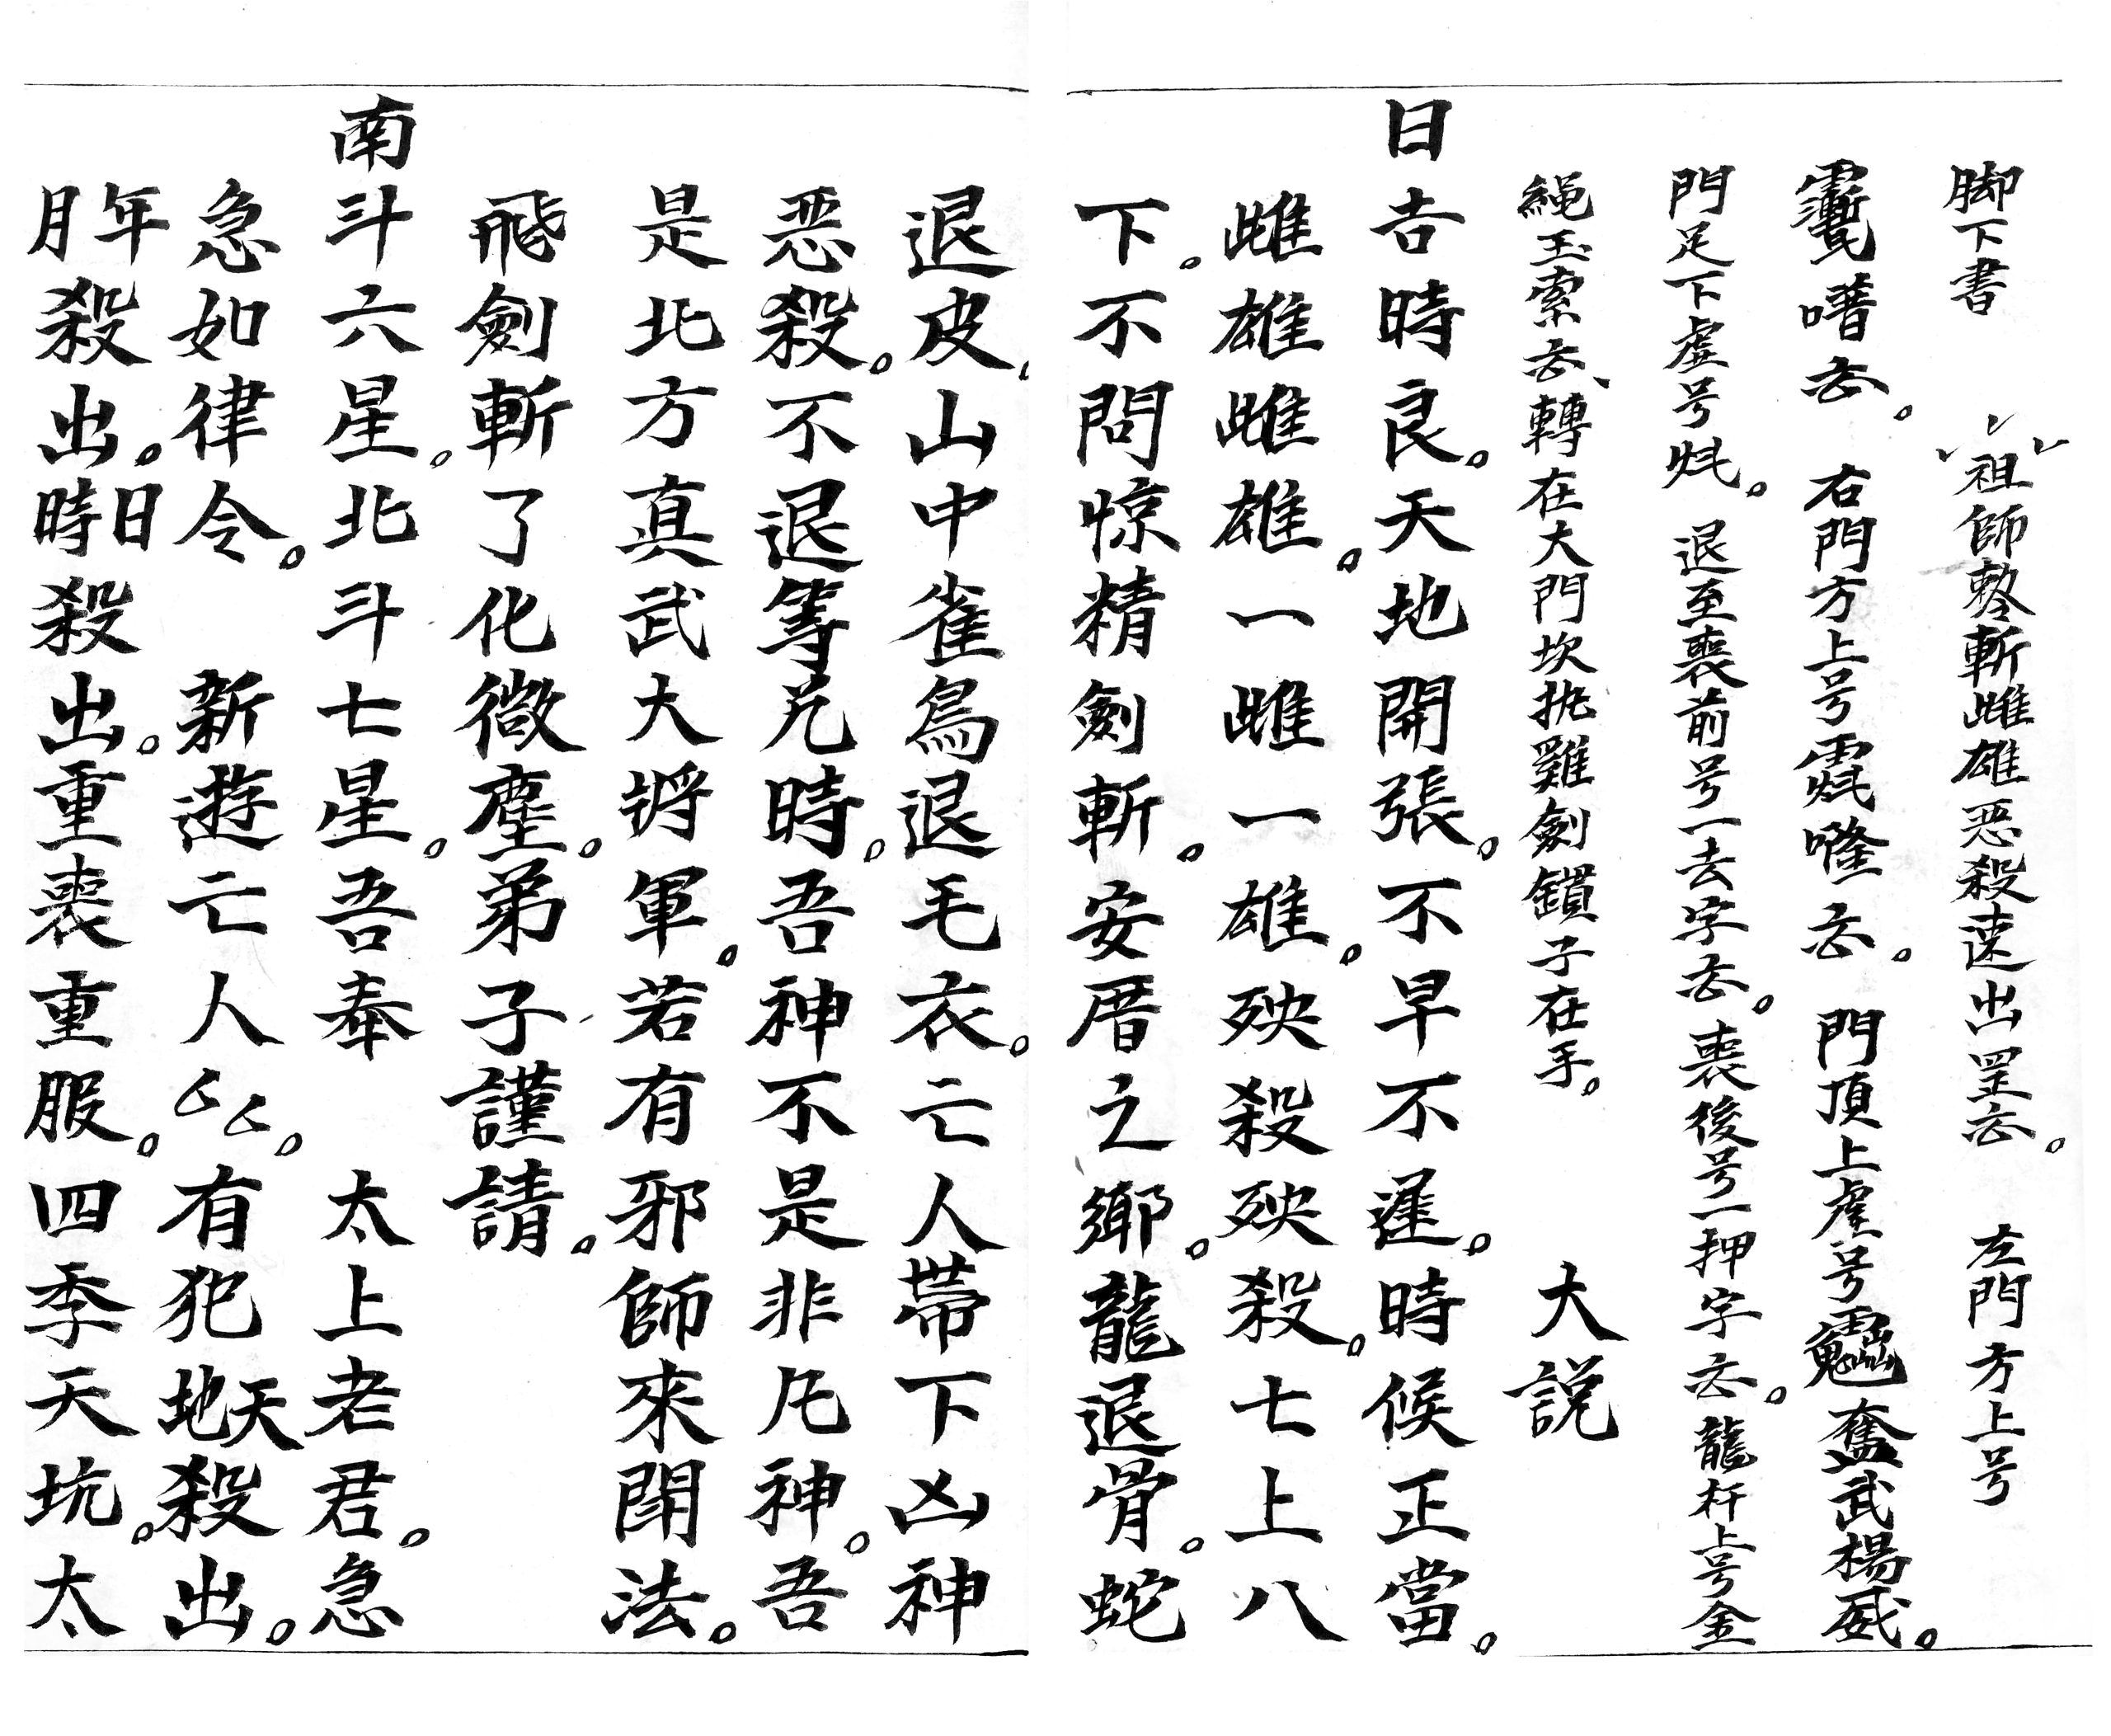 脚下書 祖師勅斬雌雄恶殺速出罡㐫。 左門方上号
噆㐫。 右門方上号 㐫。 門頂上虚号 奮武楊威。
門足下虚号 。 退至喪前号一去字㐫。喪後号一押字㐫。龍杆上号金
繩玉索㐫、轉在大門坎批雞劍鑕子在手。 大説
日吉時良。天地開張。不早不遲。時候正當。
雌雄雌雄。一雌一雄。殃殺殃殺。七上八
下。不問惊精劍斬。安厝之鄉。龍退骨。蛇
退皮。山中雀鳥退毛衣。亡人帶下凶神
恶殺。不退等凢時。吾神不是非凢神。吾
是北方真武大将軍。若有邪師來鬧法。
飛劍斬了化微塵。弟子謹請。
南斗六星。北斗七星。吾奉 太上老君。急
急如律令。 新遊亡人厶厶。有犯天地殺出。
年月殺出。日時殺出。重喪重服。四季天坑。太